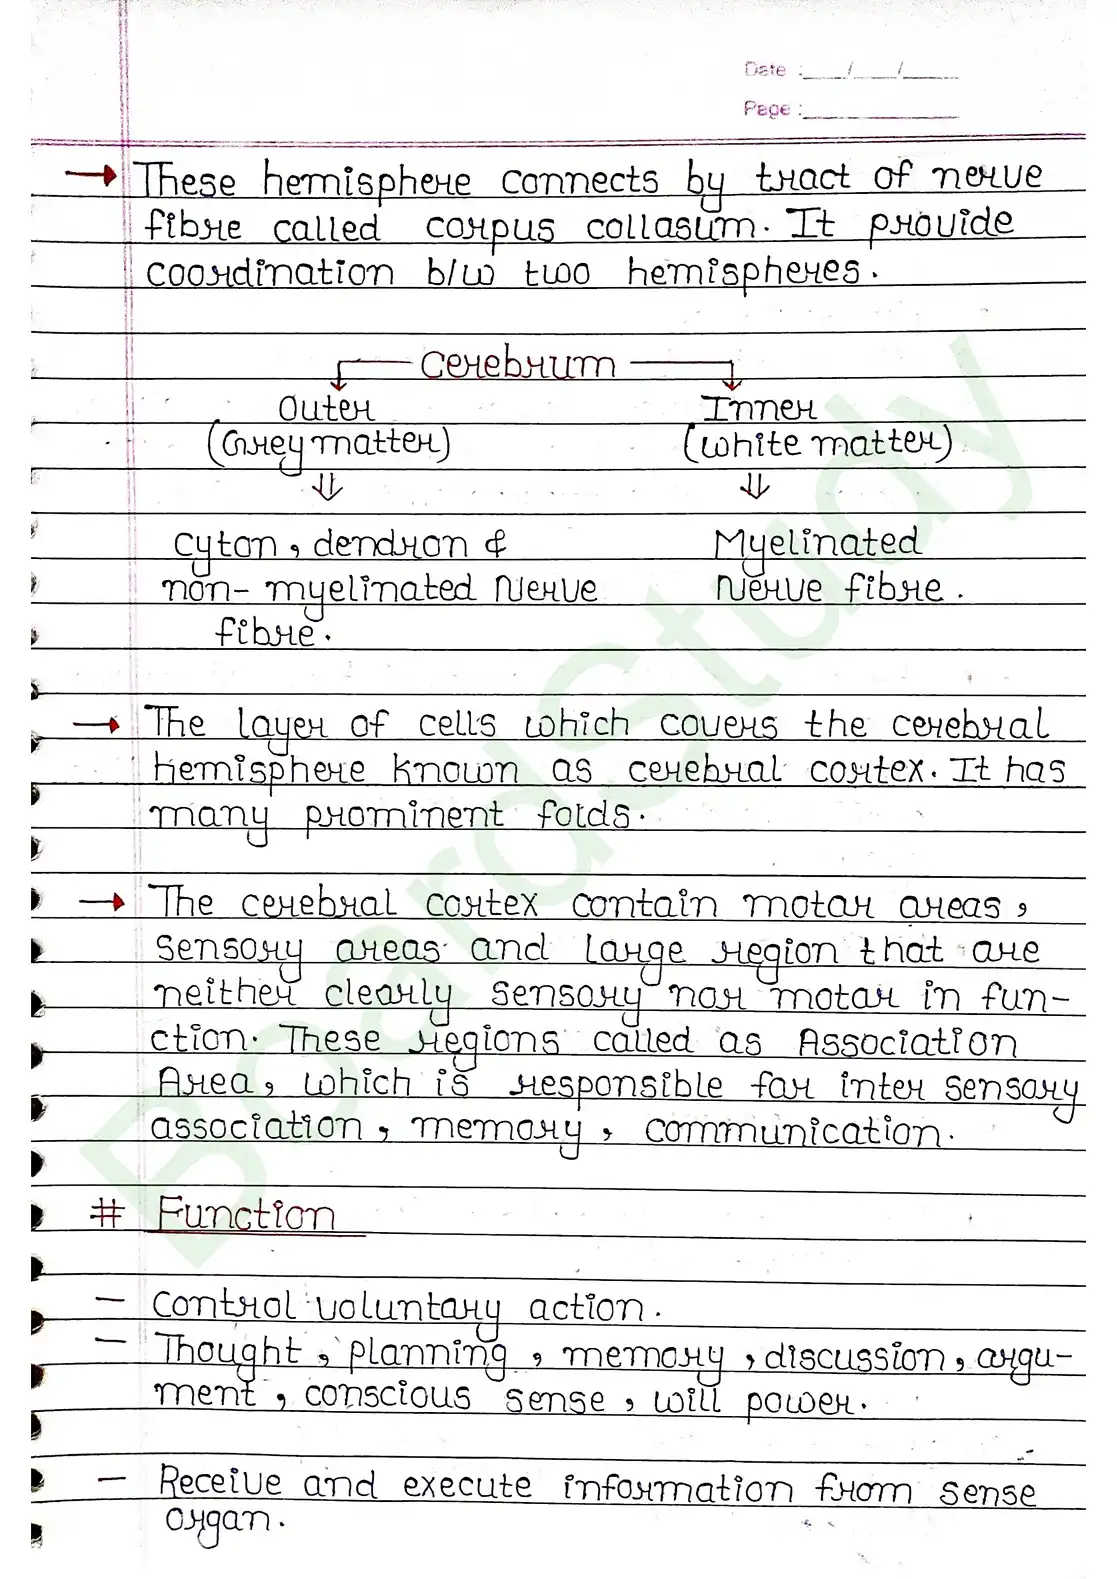 Date :___/___/____
Page :____________
→ These hemisphere connects by tract of nerve
fibre called corpus collasum. It provide
coordination b/w two hemispheres.
Cerebrum
Outer Inner
(Grey matter) (white matter)
⇓ ⇓
Cyton, dendron & Myelinated
non-myelinated Nerve Nerve fibre.
fibre.
→ The layer of cells which covers the cerebral
hemisphere known as cerebral cortex. It has
many prominent folds.
→ The cerebral cortex contain motar areas,
sensory areas and large region that are
neither clearly sensory nor motar in fun-
ction. These regions called as Association
Area, which is responsible for inter sensory
association, memory, communication.
# Function
– Control voluntary action.
– Thought, planning, memory, discussion, argu-
ment, conscious sense, will power.
– Receive and execute information from sense
organ.
BoardStudy